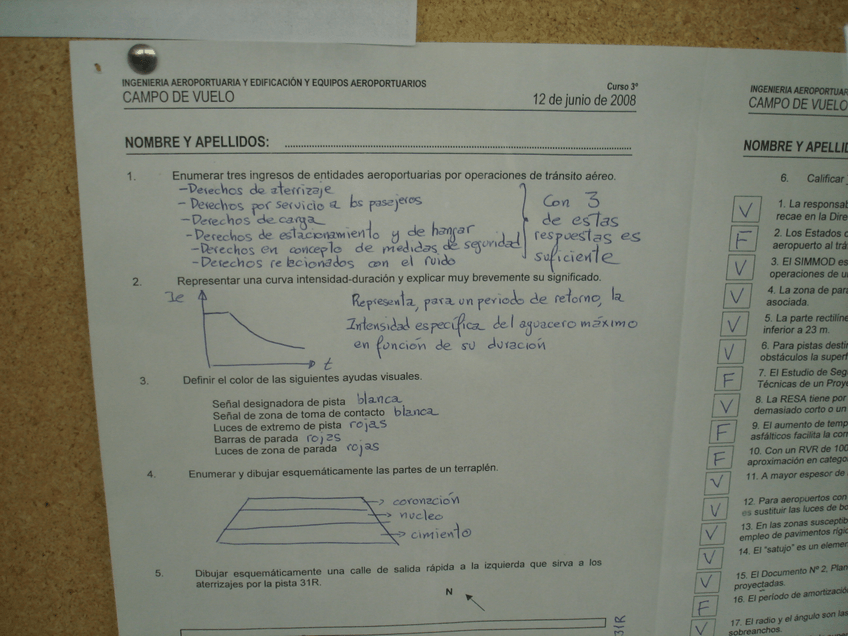 INGENIERIA AEROPORTUARIA Y EDIFICACIÓN Y EQUIPOS AEROPORTUARIOS
Curso 3º
CAMPO DE VUELO
12 de junio de 2008
NOMBRE Y APELLIDOS:
1. Enumerar tres ingresos de entidades aeroportuarias por operaciones de tránsito aéreo.
-Derechos de aterrizaje
- Derechos por servicio a los pasejeros
-Derechos de carga
- Derechos de estacionamiento y de hangar
- Derechos en concepto de medidas de seguridad
- Derechos relacionados con el ruido
Con 3
de estas
respuestas es
suficiente
2. Representar una curva intensidad-duración y explicar muy brevemente su significado.
Ie
t
Representa, para un periodo de retorno, la
Intensidad específica del aguacero máximo
en función de su duración
3. Definir el color de las siguientes ayudas visuales.
Señal designadora de pista blanca
Señal de zona de toma de contacto blanca
Luces de extremo de pista rojas
Barras de parada rojas
Luces de zona de parada rojas
4. Enumerar y dibujar esquemáticamente las partes de un terraplén.
coronación
nucleo
cimiento
5. Dibujar esquemáticamente una calle de salida rápida a la izquierda que sirva a los
aterrizajes por la pista 31R.
N
31R
INGENIERIA AEROPORTUAR
CAMPO DE VUELO
NOMBRE Y APELLI
6. Calificar
V 1. La responsab
recae en la Dire
F 2. Los Estados
aeropuerto al trá
V 3. El SIMMOD es
operaciones de
V 4. La zona de par
asociada.
V 5. La parte rectiline
inferior a 23 m.
V 6. Para pistas desti
obstáculos la superf
F 7. El Estudio de Seg
Técnicas de un Proye
V 8. La RESA tiene por
demasiado corto o un
F 9. El aumento de temp
asfálticos facilita la con
F 10. Con un RVR de 100
aproximación en catego
V 11. A mayor espesor de
V 12. Para aeropuertos con
es sustituir las luces de bo
V 13. En las zonas susceptib
empleo de pavimentos rígi
V 14. El "satujo" es un elemen
V 15. El Documento Nº 2, Plan
proyectadas.
F 16. El período de amortizació
V 17. El radio y el ángulo son las
sobreanchos.